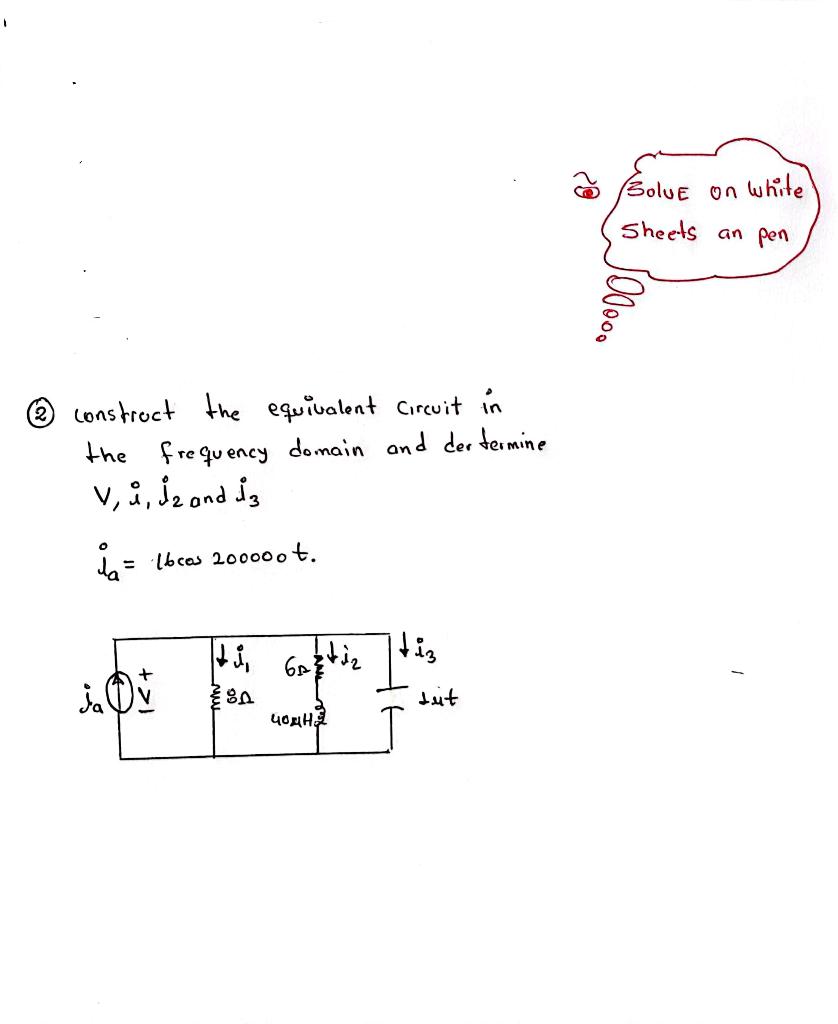 SolvE on white
Sheets an pen
② construct the equivalent circuit in
the frequency domain and der termine
V, i, i₂ and i₃
iₐ = 16cos 200000t.
iₐ + V − ↓i₁ 8Ω 6Ω ↓i₂ 40μH ↓i₃